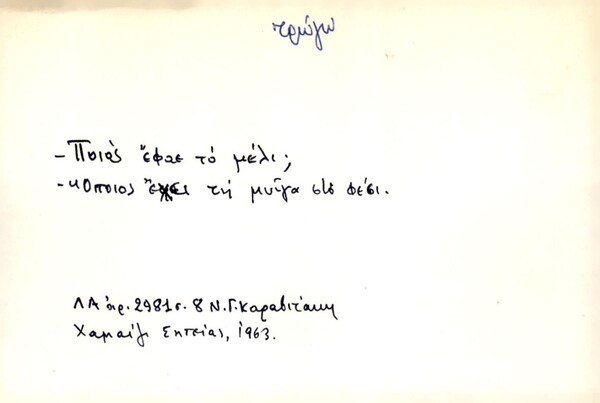 τρώγω
- Ποιὸς ἔφαε τὸ μέλι;
- κὍποιος ἔχει τὴ μυῖγα στὸ φέσι.
ΛΑ ἀρ. 2981 σ. 8 Ν.Γ. Καραβιτάκη
Χαμαίζι Σητείας, 1963.